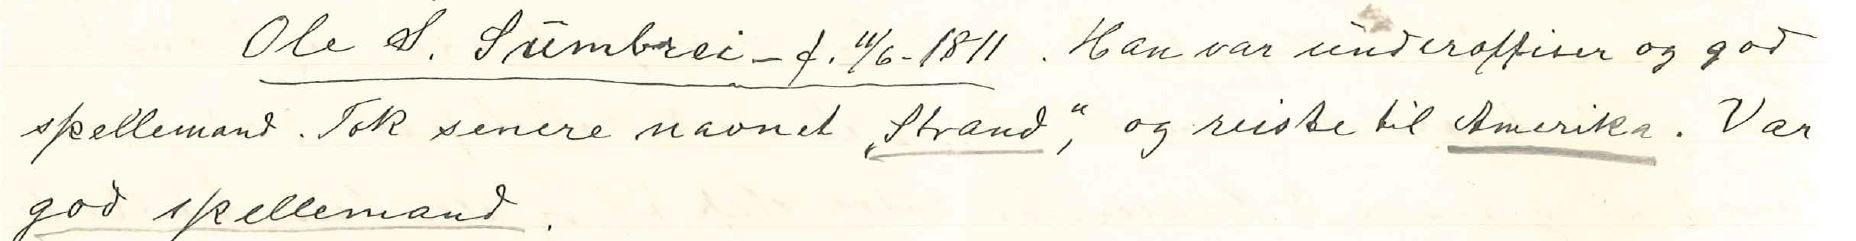 Ole S. Sumbrei - f. 11/6-1811. Han var underoffiser og god
spellemand. Tok senere navnet „Strand“, og reiste til Amerika. Var
god spellemand.